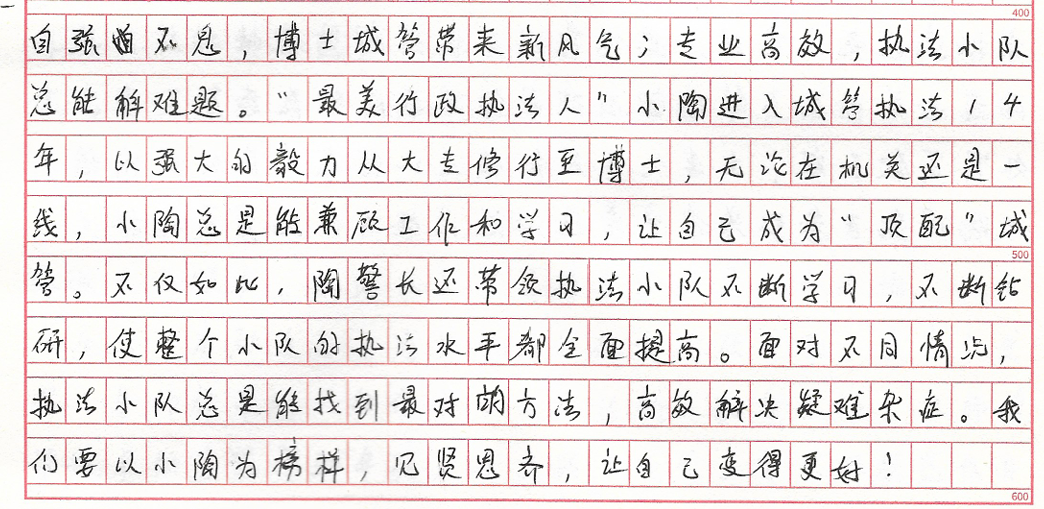 400
自强不息，博士城管带来新风气；专业高效，执法小队
总能解难题。“最美行政执法人”小陶进入城管执法14
年，以强大的毅力从大专修行至博士，无论在机关还是一
线，小陶总是能兼顾工作和学习，让自己成为“顶配”城
500
管。不仅如此，陶警长还带领执法小队不断学习，不断钻
研，使整个小队的执法水平都全面提高。面对不同情况，
执法小队总是能找到最对的方法，高效解决疑难杂症。我
们要以小陶为榜样，见贤思齐，让自己变得更好！
600